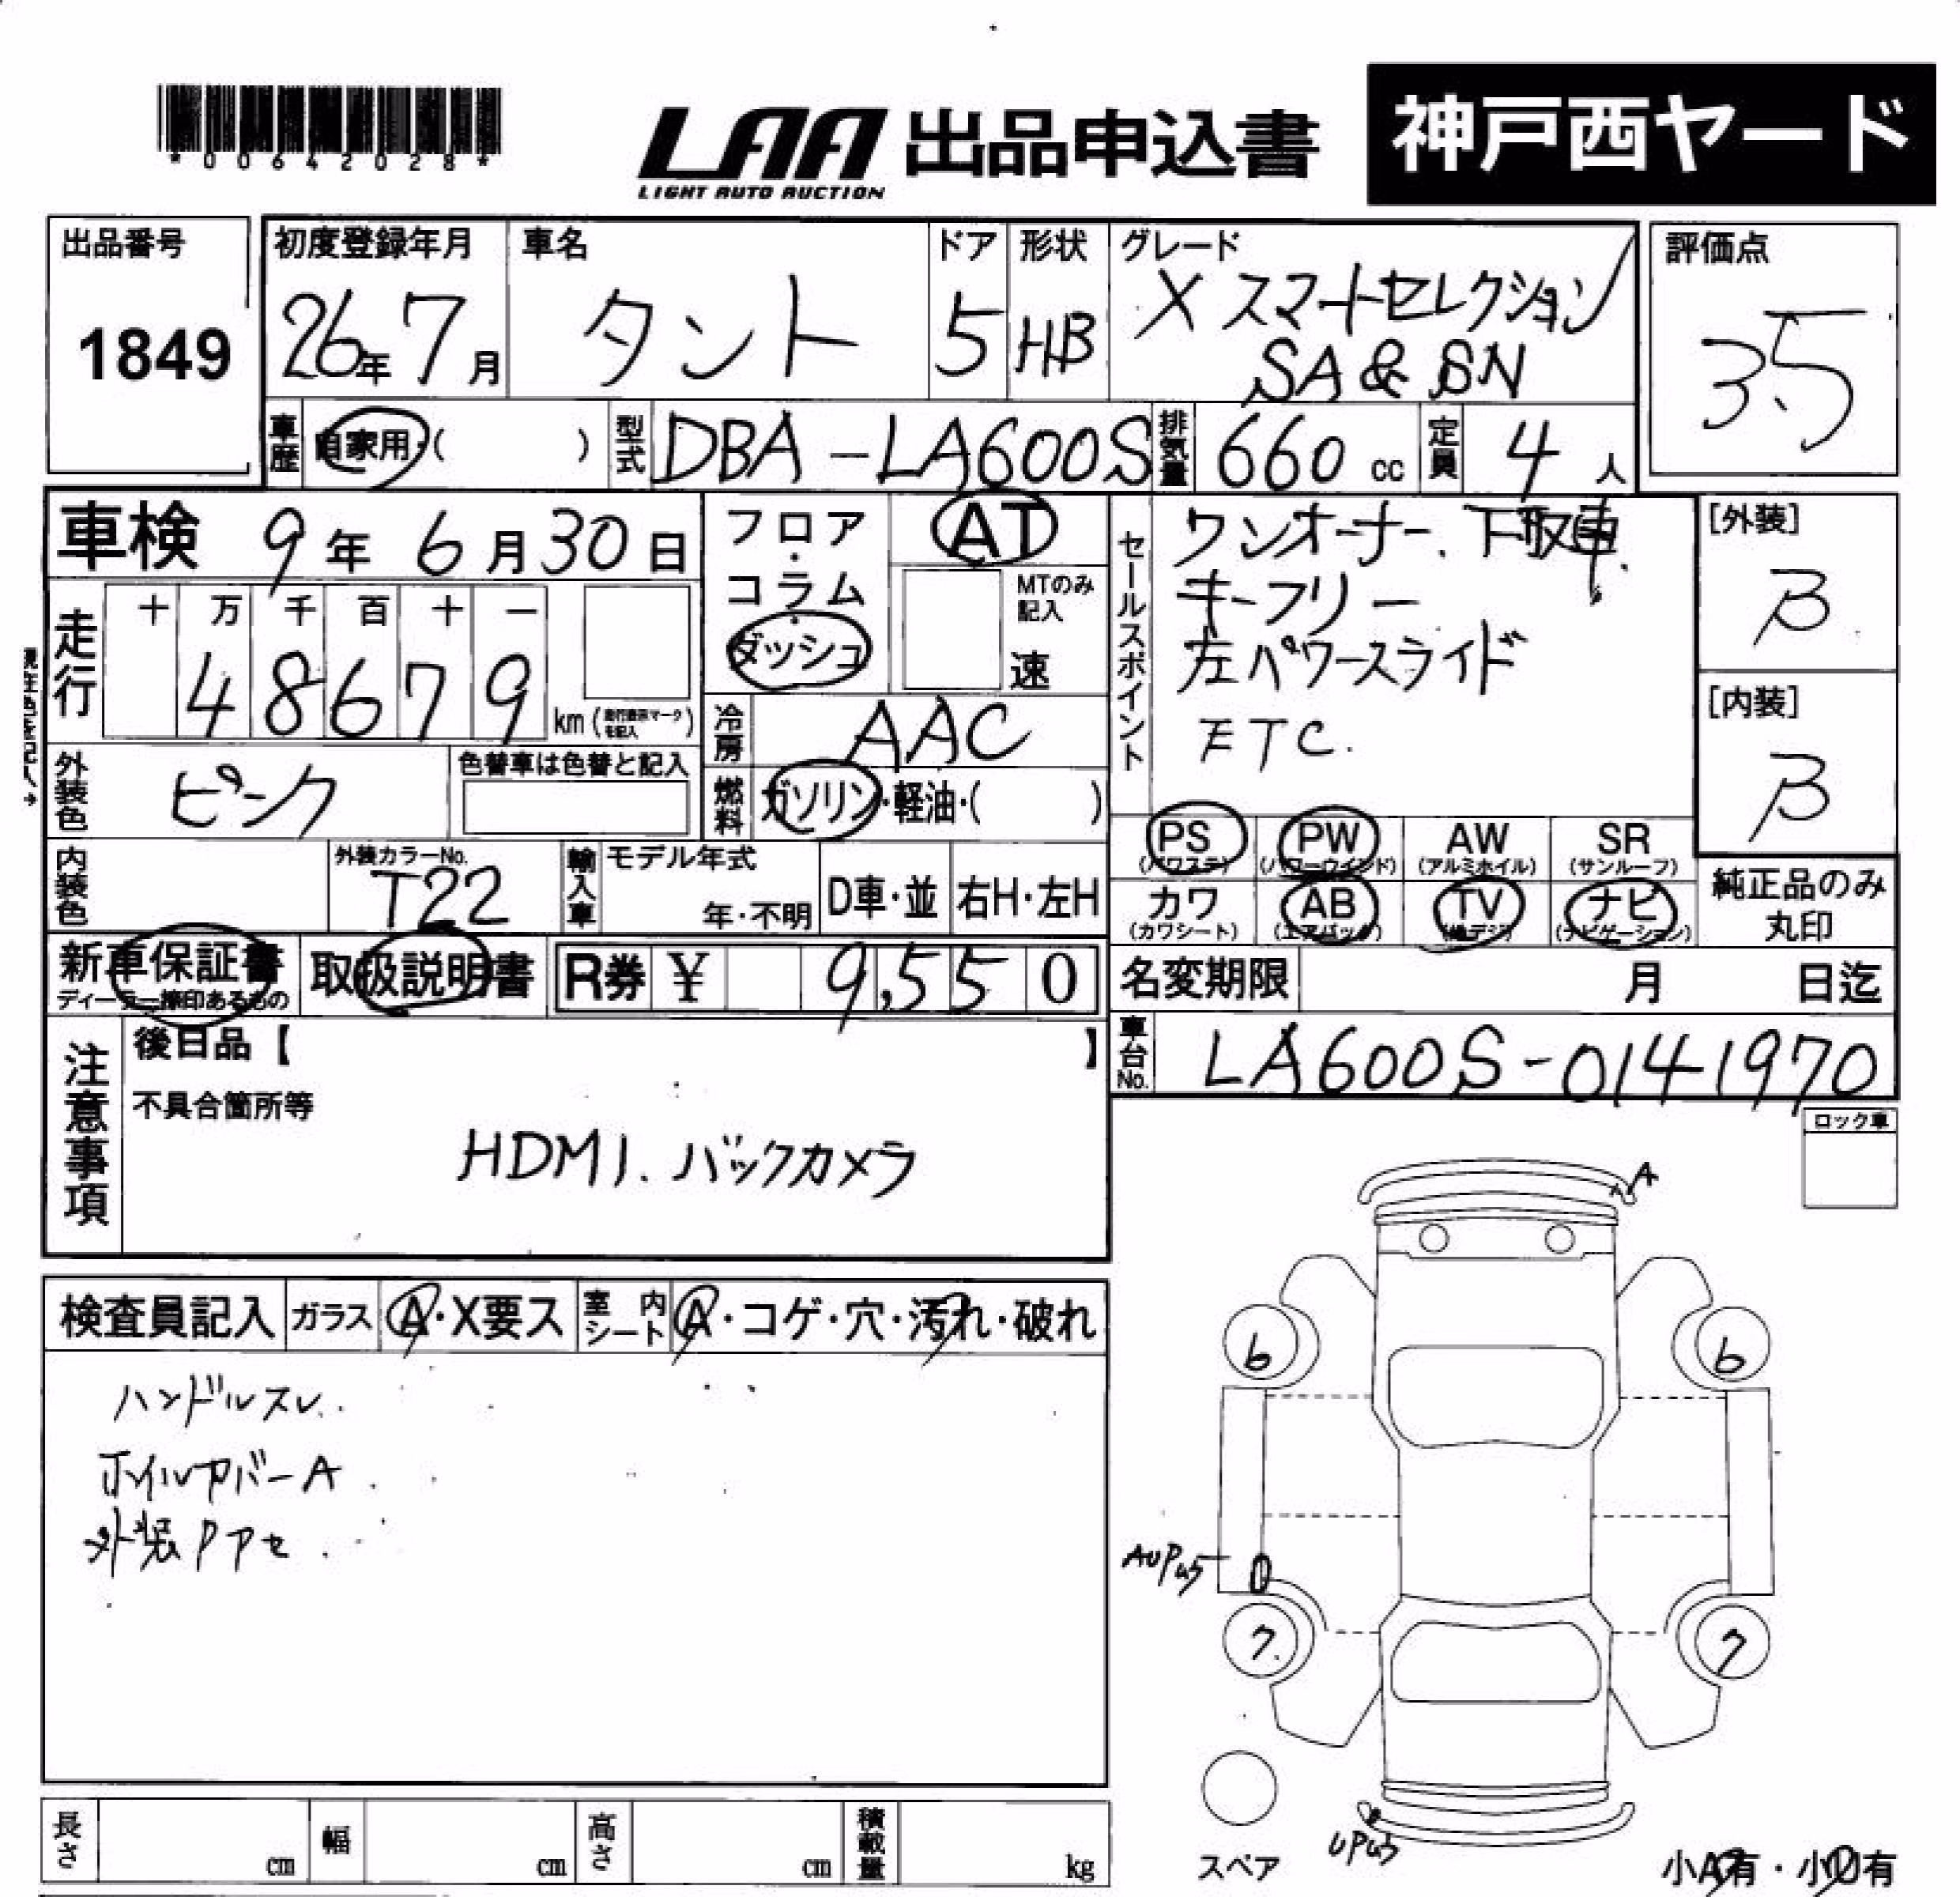 *00642028*
LAA 出品申込書 神戸西ヤード
LIGHT AUTO AUCTION
出品番号 初度登録年月 車名 ドア 形状 グレード 評価点
1849 26年 7月 タント 5 HB X スマートセレクション 3.5
SA & SN
車歴 自家用・( ) 型式 DBA-LA600S 排気量 660 cc 定員 4 人
車検 9年 6月 30日 フロア・コラム・ダッシュ AT
MTのみ記入 速
セールスポイント ワンオーナー、下取車.
キーフリー
左パワースライド
ETC.
[外装] B
[内装] B
走行 十 万 千 百 十 一
48679 km (走行表示マークを記入)
冷房 AAC
外装色 ピンク 色替車は色替と記入
燃料 ガソリン・軽油・( )
PS (パワステ) PW (パワーウインド) AW (アルミホイル) SR (サンルーフ)
カワ (カワシート) AB (エアバック) TV (地デジ) ナビ (ナビゲーション)
純正品のみ丸印
内装色 外装カラーNo. T22 輸入車 モデル年式 年・不明 D車・並 右H・左H
新車保証書 取扱説明書 R券 ¥ 9,550
ディーラー捺印あるもの
名変期限 月 日迄
車台No. LA600S-0141970
注意事項 後日品【 】
不具合箇所等
HDMI. バックカメラ
ロック車
A
検査員記入 ガラス A・X要ス 室内シート A・コゲ・穴・汚れ・破れ
ハンドルスレ.
ホイルカバーA.
外装Pアセ.
6 6
7 7
スペア
小A有・小U有
長さ cm 幅 cm 高さ cm 積載量 kg